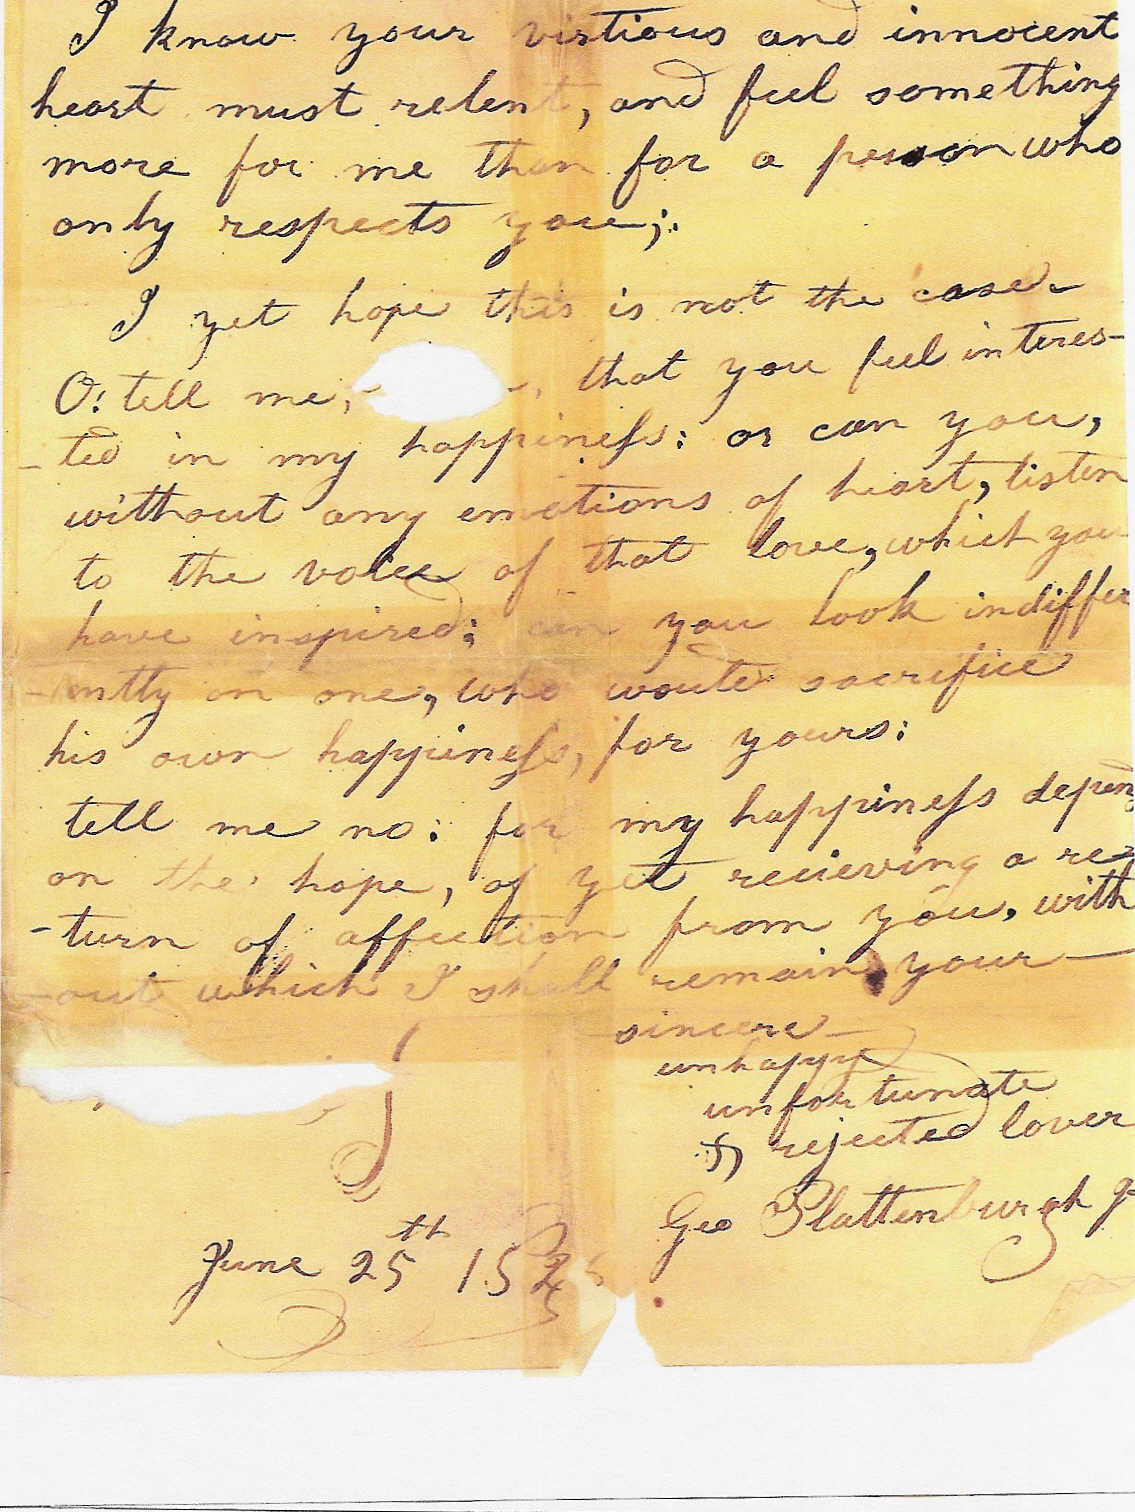 I know your virtious and innocent
heart must relent, and feel something
more for me than for a person who
only respects you;.
I yet hope this is not the case
O: tell me, that you feel interes-
-ted in my happineſs: or can you,
without any emotions of heart, listen
to the voice of that love, which you
have inspired; can you look indiffer
-ently on one, who would sacrifice
his own happineſs, for yours:
tell me no: for my happineſs depend
on the hope, of yet recieving a re-
-turn of affection from you, with
-out which I shall remain your—
sincere—
unhappy
unfortunate
& rejected lover
Geo Plattenburgh Jr
June 25th